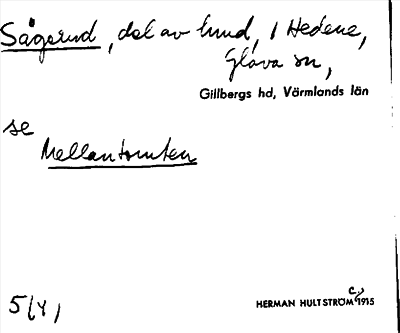 Sågerud, del av lund, / Hedene,
Glava sn,
Gillbergs hd, Värmlands län
se
Mellantomten
5/4 /
HERMAN HULTSTRÖM c. 1915